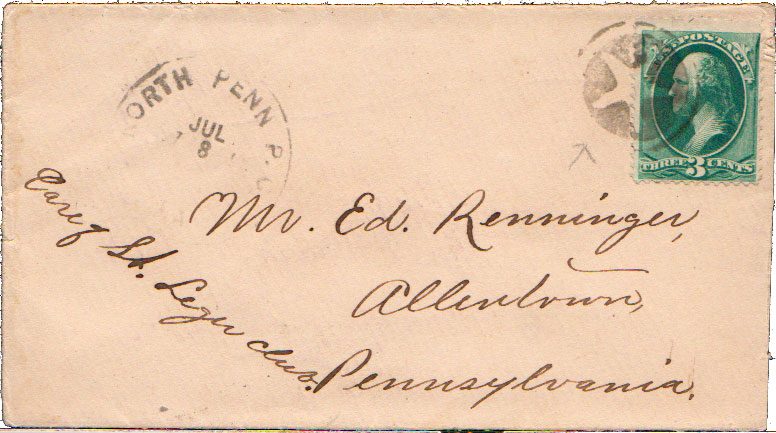 NORTH PENN P.O.
JUL
8
U.S. POSTAGE
THREE 3 CENTS
Mr. Ed. Renninger,
Allentown,
Pennsylvania.
Care of St. Leger club.